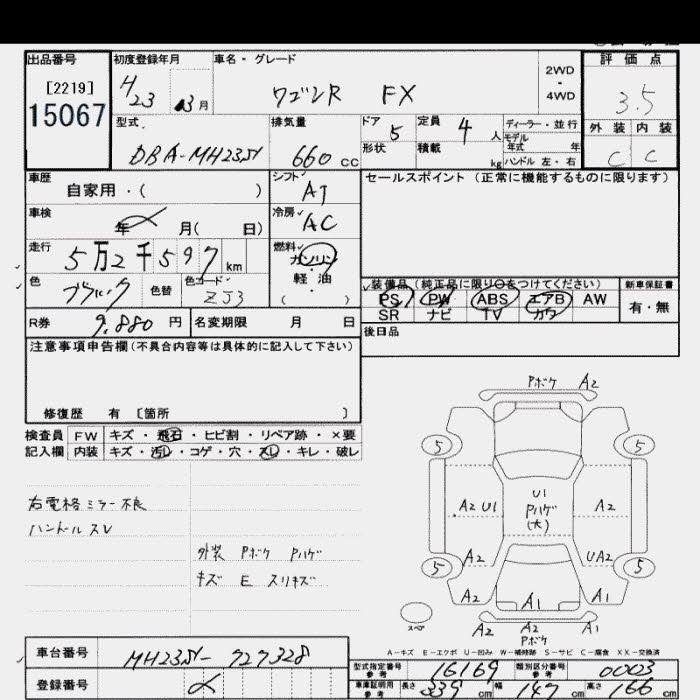 出品番号 初度登録年月 車名・グレード 評価点
[2219] H23 3月 ワゴンR FX 2WD・4WD 3.5
15067
外装 内装
C C
型式 DBA-MH23S 排気量 660 CC
ドア 5 定員 4 人 ディーラー・並行
モデル年式 年
形状 積載 kg ハンドル 左・右
車歴 自家用・( ) シフト AT セールスポイント (正常に機能するものに限ります)
車検 年 月( 日) 冷房 AC
走行 5万2千597km 燃料 ガソリン・軽油・( )
色 ブラック 色替 色コード ZJ3
装備品(純正品に限り○をつけてください) 新車保証書
PS PW ABS エアB AW 有・無
SR ナビ TV カワ
R券 9,880 円 名変期限 月 日
後日品
注意事項申告欄(不具合内容等は具体的に記入して下さい)
修復歴 有 [箇所 ]
検査員 FW キズ・飛石・ヒビ割・リペア跡・×要
記入欄 内装 キズ・汚レ・コゲ・穴・スレ・キレ・破レ
右電格ミラー不良
ハンドルスレ
外装 Pボケ Pハゲ
キズ E スリキズ
Pボケ A2
5 5
A2 U1 U1 A2
Pハゲ
(大)
A2 UA2
5 5
A2 A1 A1
スペア A2 A2 A1
Pボケ
A-キズ E-エクボ U-凹み W-補修跡 S-サビ C-腐食 XX-交換済
車台番号 MH23S- 727328
登録番号
型式指定番号 参考 16169 類別区分番号 参考 0003
車庫証明用 参考 長さ 339 cm 幅 147 cm 高さ 166 cm